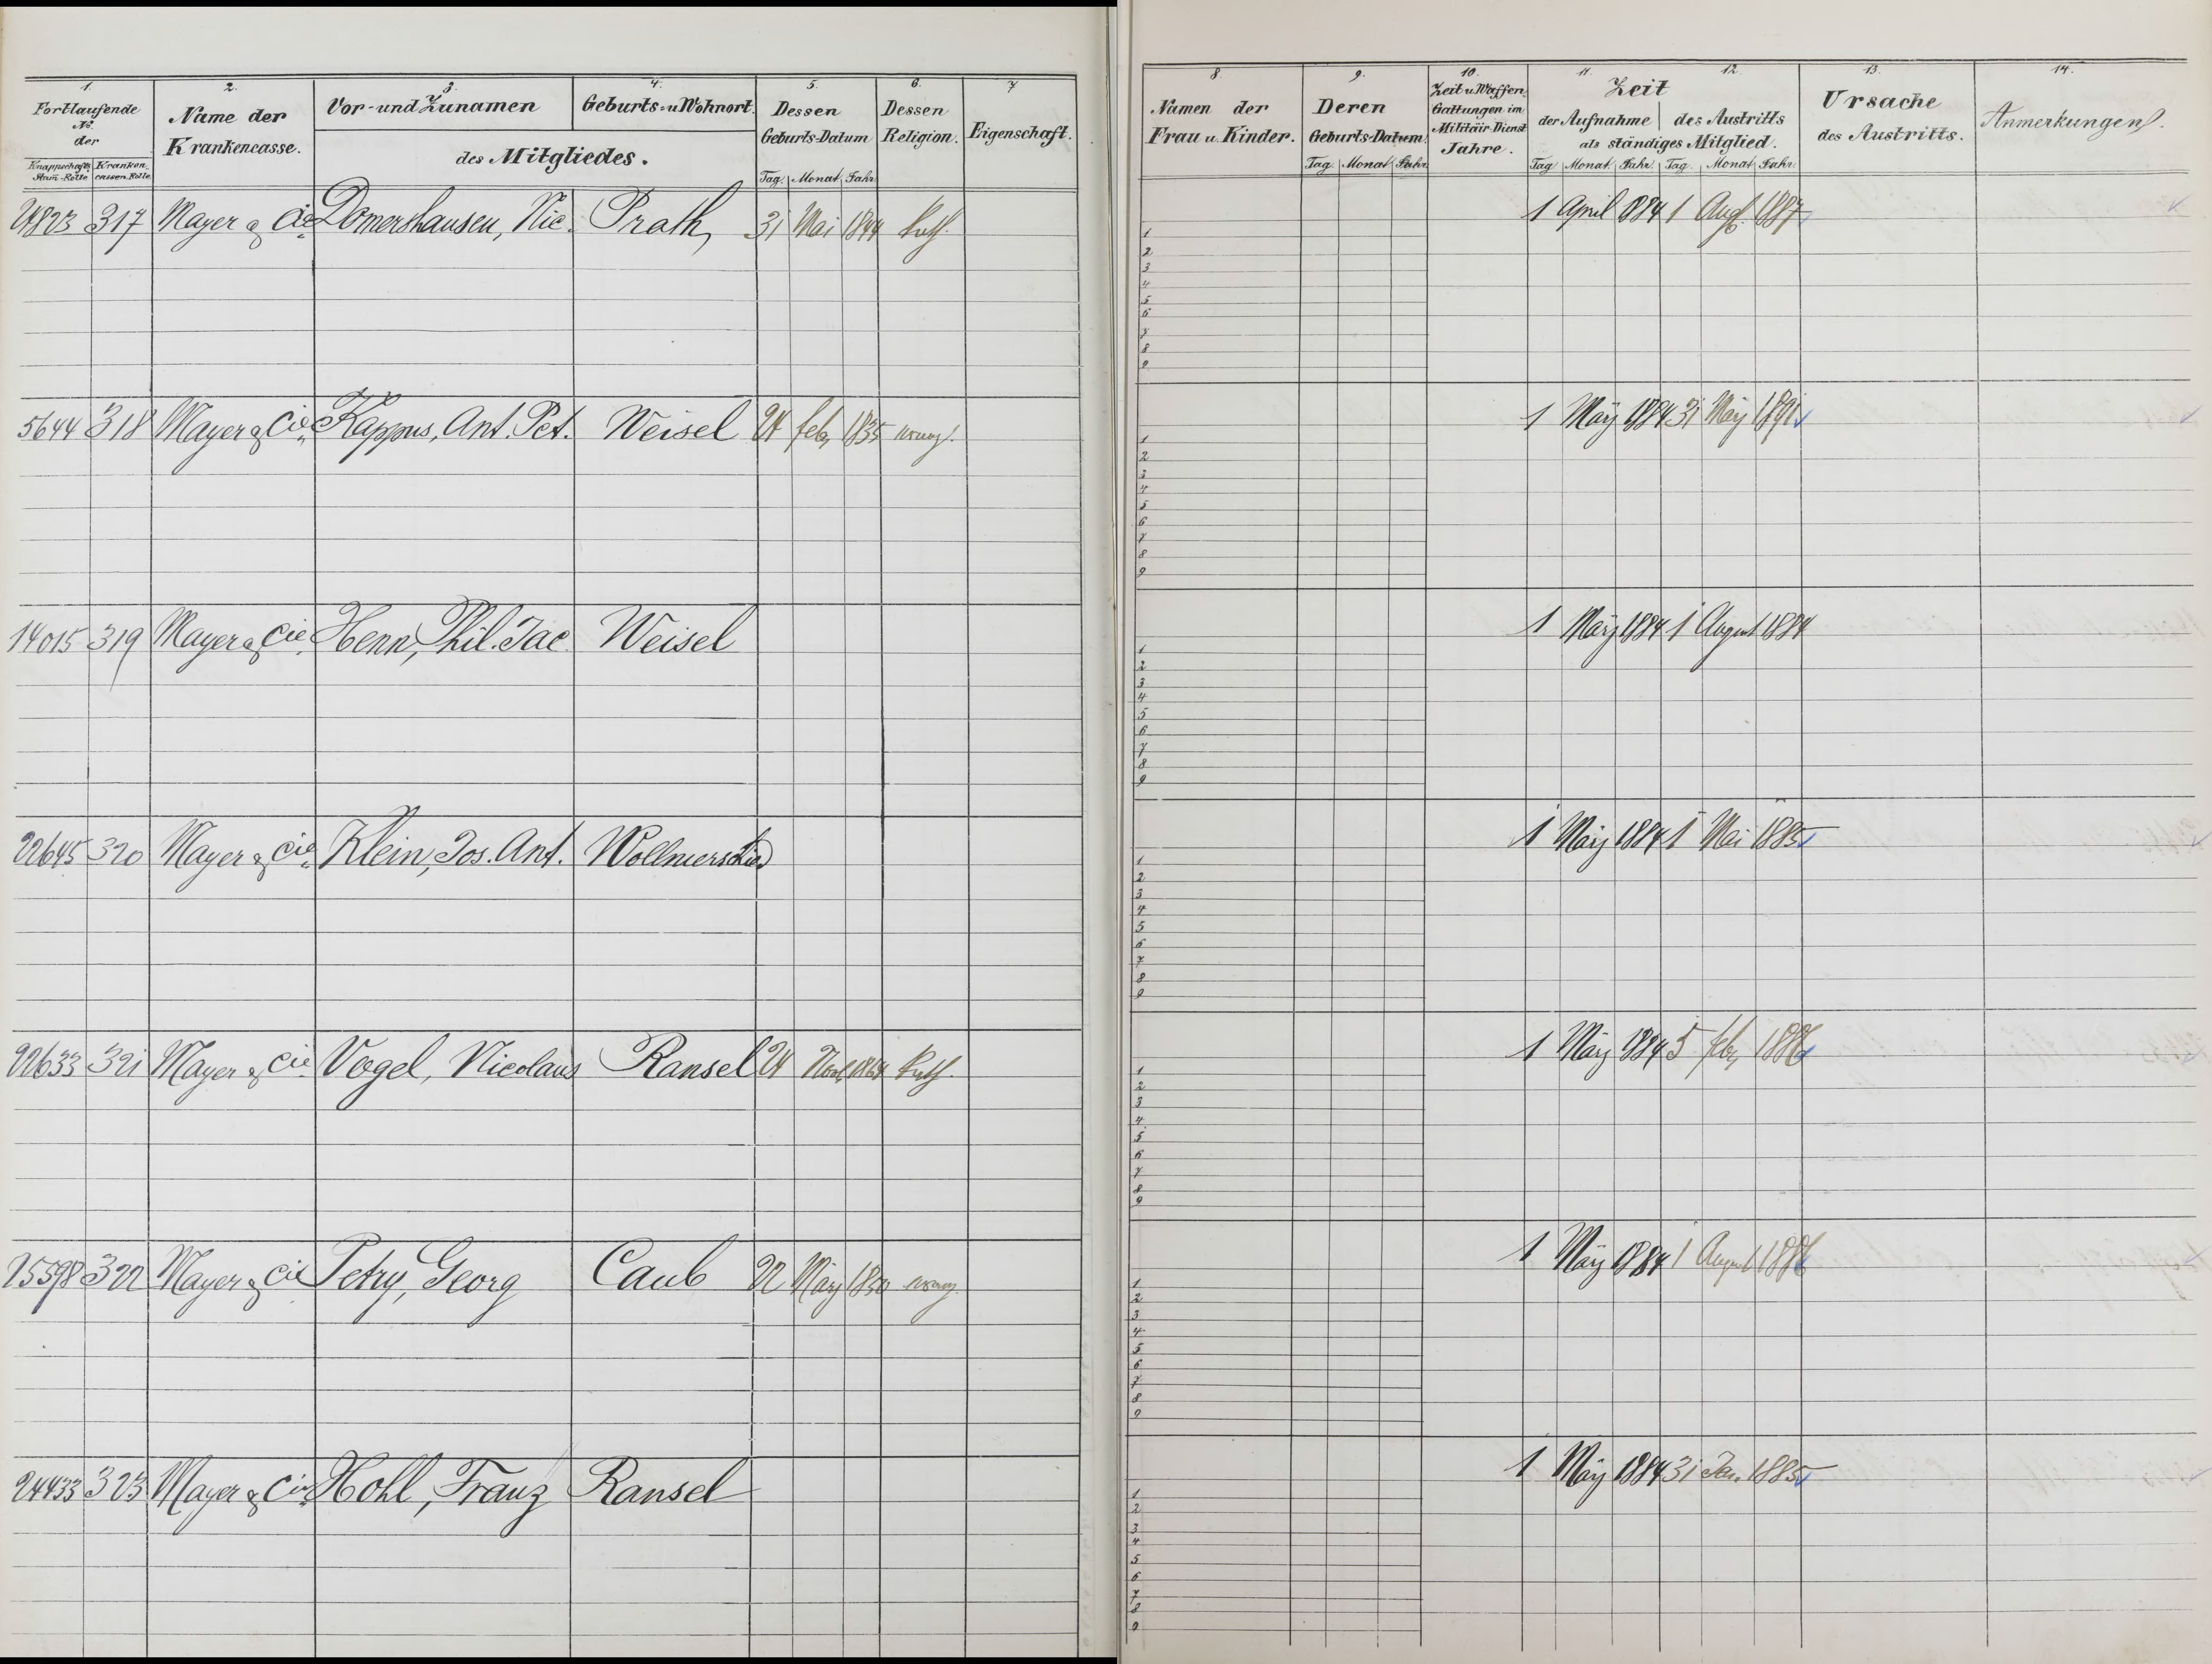 1. 2. 3. 4. 5. 6. 7
Fortlaufende No. der
Knappschafts Stam-Rolle Kranken cassen Rolle
Name der Krankencasse.
Vor- und Zunamen Geburts- u Wohnort.
des Mitgliedes.
Dessen Geburts-Datum
Tag. Monat Jahr.
Dessen Religion.
Eigenschaft.
317 Mayer & Cie Domershausen, Nic. Prath, 31 Mai 1844 Kath.
5644 318 Mayer & Cie Kappus, Ant. Pet. Weisel 24 Feb. 1835 evang.
14015 319 Mayer & Cie. Henn, Phil. Jac. Weisel
22645 320 Mayer & Cie Klein, Jos. Ant. Wollmerschied
22633 321 Mayer & Cie Vogel, Nicolaus Ransel 24 1864 Kath.
322 Mayer & Cie Petry, Georg Caub 22 März 1850 evang.
24433 323 Mayer & Cie Hohl, Franz Ransel
8. 9. 10. 11. 12. 13. 14.
Namen der Frau u. Kinder.
Deren Geburts-Datum
Tag. Monat Jahr.
Zeit u Waffen Gattungen im Militäir Dienst Jahre.
Zeit
der Aufnahme des Austritts
als ständiges Mitglied.
Tag Monat Jahr. Tag. Monat Jahr.
Ursache des Austritts.
Anmerkungen.
1 April 1884 1 Aug. 1887
1
2
3
4
5
6
7
8
9
1 März 1884 31 März 1891
1
2
3
4
5
6
7
8
9
1 März 1884 1 August 1884
1
2
3
4
5
6
7
8
9
1 März 1884 1 Mai 1885
1
2
3
4
5
6
7
8
9
1 März 1884 5 Feb. 1886
1
2
3
4
5
6
7
8
9
1 März 1884 1 August 1886
1
2
3
4
5
6
7
8
9
1 März 1884 31 Jan. 1885
1
2
3
4
5
6
7
8
9